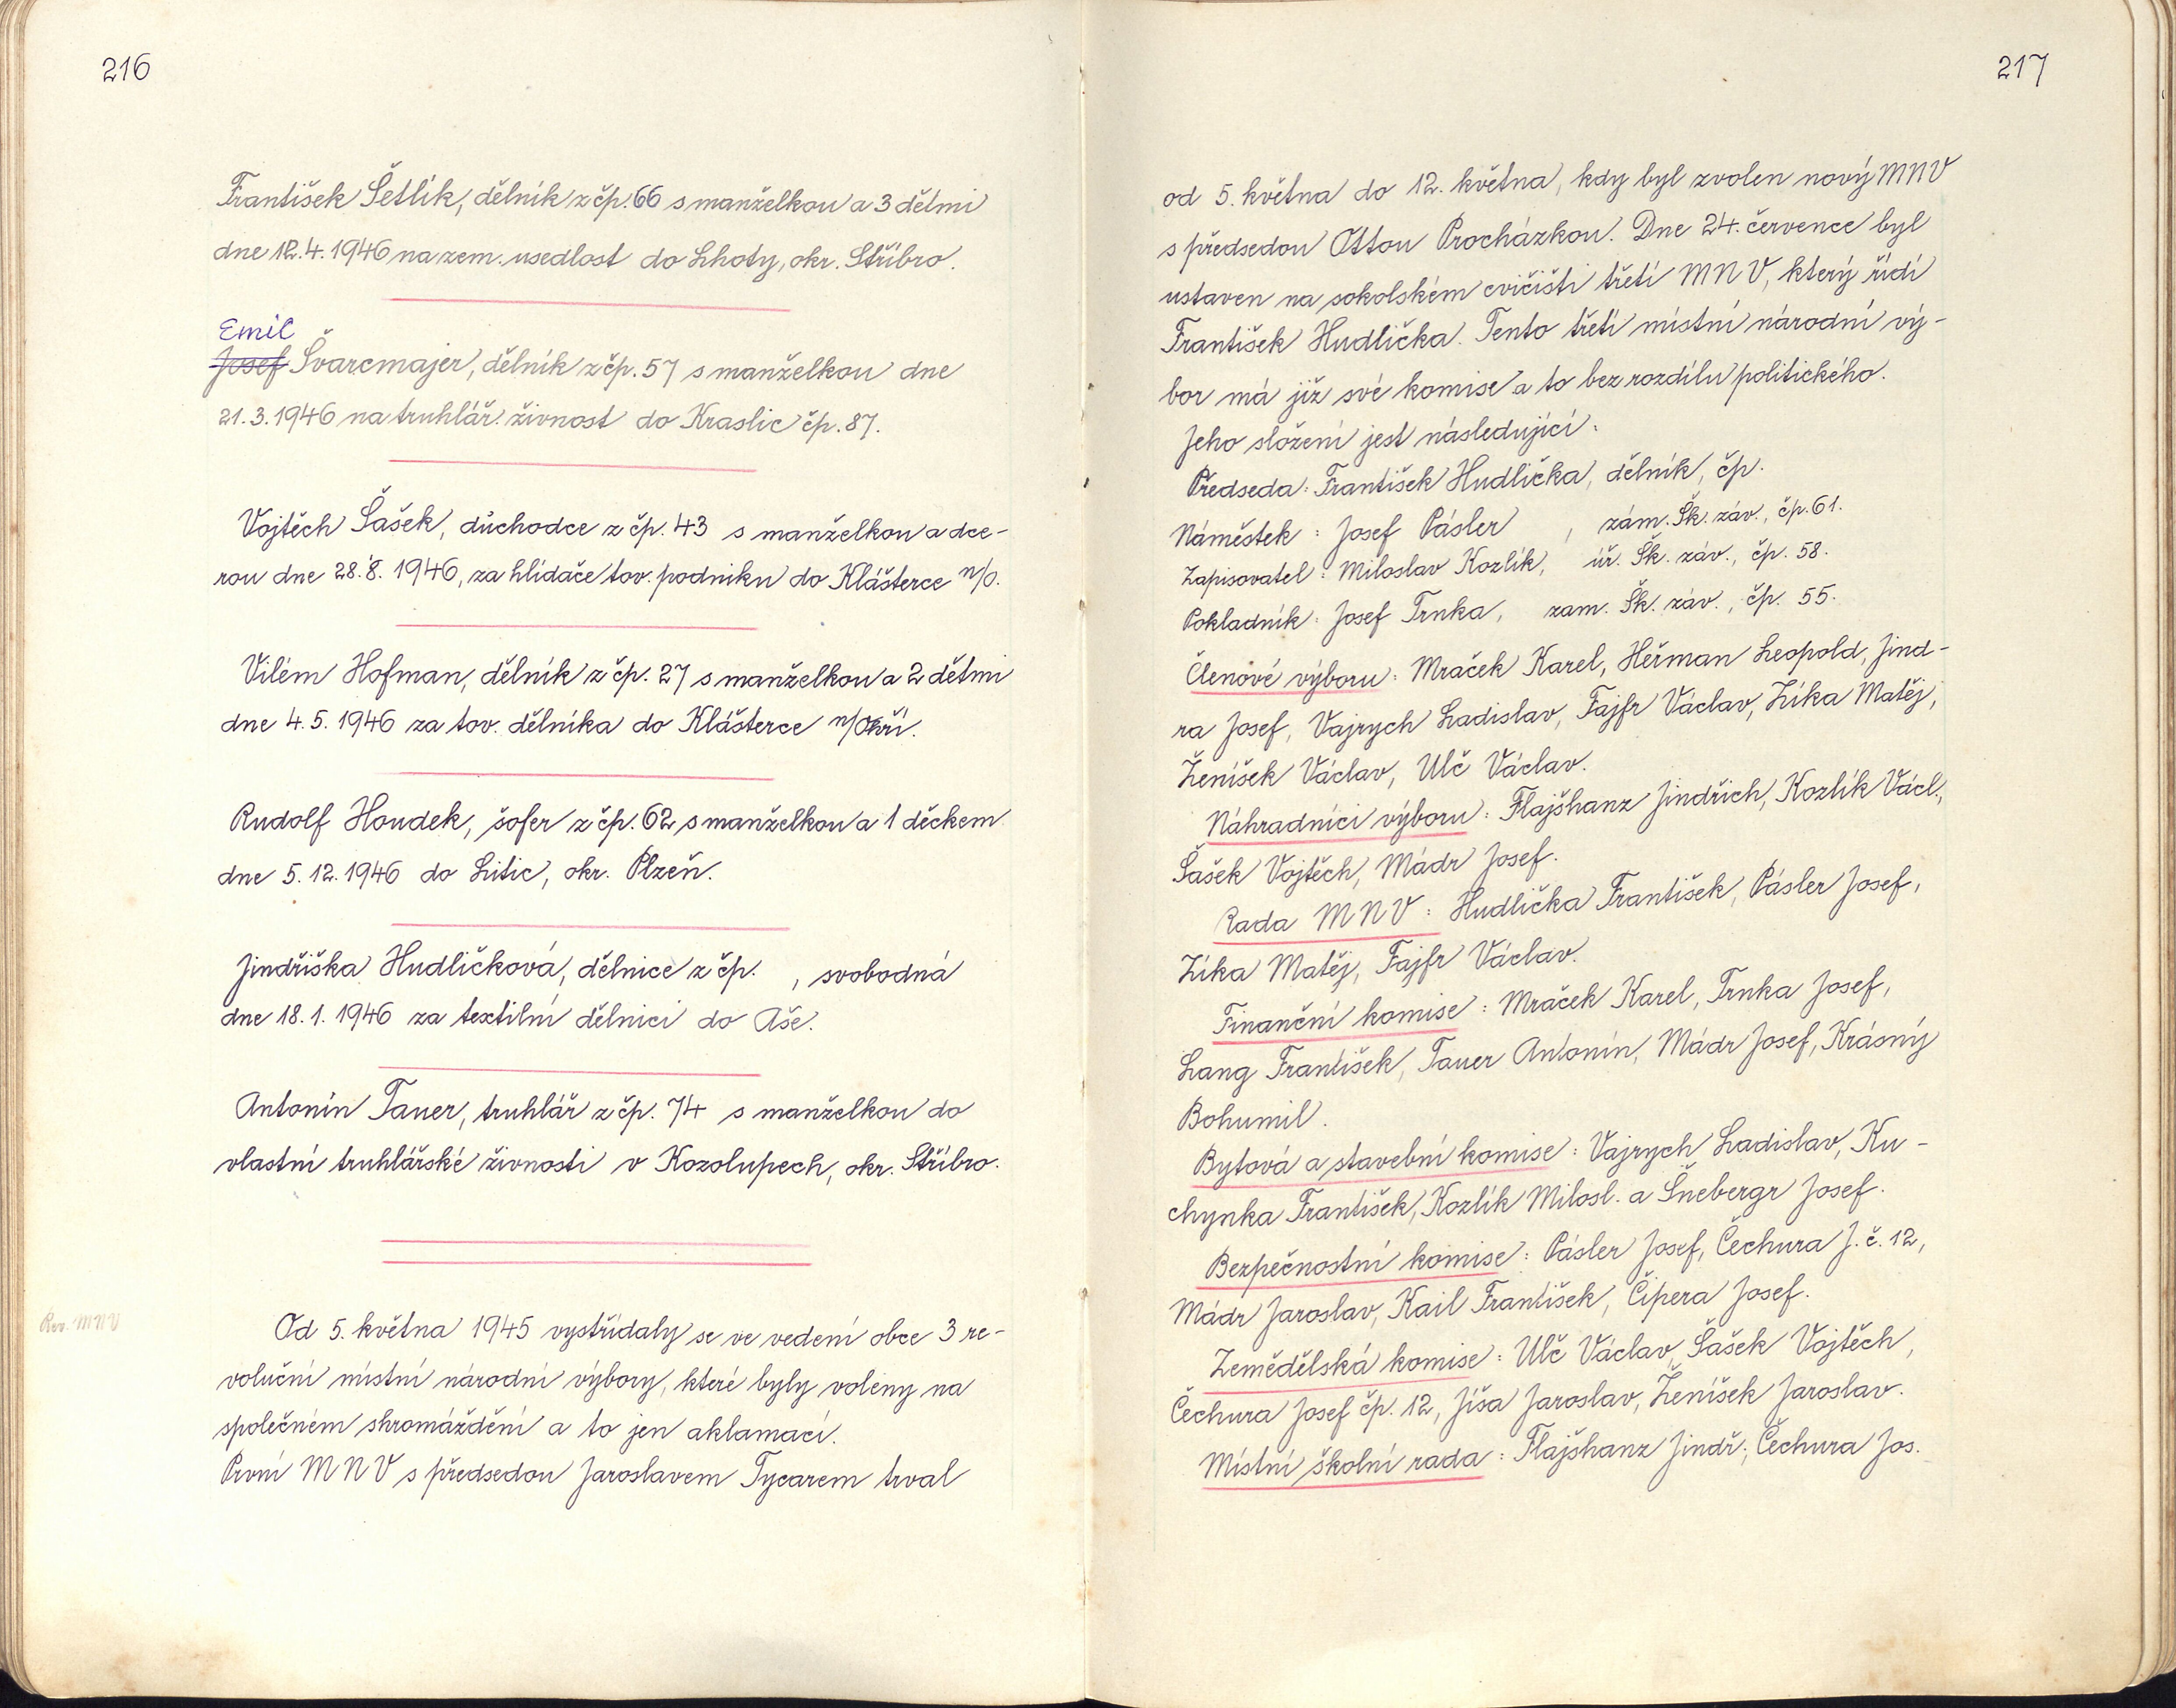 216
František Šetlík, dělník z čp. 66 s manželkou a 3 dětmi
dne 12.4.1946 na zem. usedlost do Lhoty, okr. Stříbro.
Emil
Josef Švarcmajer, dělník z čp. 57 s manželkou dne
21.3.1946 na truhlář. živnost do Kraslic čp. 87.
Vojtěch Šašek, důchodce z čp. 43 s manželkou a dce-
rou dne 28.8.1946, za hlídače tov. podniku do Klášterce n/O.
Vilém Hofman, dělník z čp. 27 s manželkou a 2 dětmi
dne 4.5.1946 za tov. dělníka do Klášterce n/Ohří.
Rudolf Houdek, šofer z čp. 62 s manželkou a 1 děckem
dne 5.12.1946 do Litic, okr. Plzeň.
Jindřiška Hudličková, dělnice z čp. , svobodná
dne 18.1.1946 za textilní dělnici do Aše.
Antonín Tauer, truhlář z čp. 74 s manželkou do
vlastní truhlářské živnosti v Kozolupech, okr. Stříbro.
Rev. MNV
Od 5. května 1945 vystřídaly se ve vedení obce 3 re-
voluční místní národní výbory, které byly voleny na
společném shromáždění a to jen aklamací.
První MNV s předsedou Jaroslavem Tycarem trval
217
od 5. května do 12. května, kdy byl zvolen nový MNV
s předsedou Ottou Procházkou. Dne 24. července byl
ustaven na sokolském cvičišti třetí MNV, který řídí
František Hudlička. Tento třetí místní národní vý-
bor má již své komise a to bez rozdílu politického.
Jeho složení jest následující:
Předseda: František Hudlička, dělník, čp.
Náměstek: Josef Pásler , zám. Šk. záv., čp. 61.
Zapisovatel: Miloslav Kozlík, úř. Šk. záv., čp. 58.
Pokladník: Josef Trnka, zam. Šk. záv., čp. 55.
Členové výboru: Mraček Karel, Heřman Leopold, Jind-
ra Josef, Vajrych Ladislav, Fajfr Václav, Zíka Matěj,
Ženíšek Václav, Ulč Václav.
Náhradníci výboru: Flajšhanz Jindřich, Kozlík Václ.,
Šašek Vojtěch, Mádr Josef.
Rada MNV: Hudlička František, Pásler Josef,
Zíka Matěj, Fajfr Václav.
Finanční komise: Mraček Karel, Trnka Josef,
Lang František, Tauer Antonín, Mádr Josef, Krásný
Bohumil.
Bytová a stavební komise: Vajrych Ladislav, Ku-
chynka František, Kozlík Milosl. a Šnebergr Josef.
Bezpečnostní komise: Pásler Josef, Čechura J. č. 12,
Mádr Jaroslav, Kail František, Čipera Josef.
Zemědělská komise: Ulč Václav, Šašek Vojtěch,
Čechura Josef čp. 12, Jíša Jaroslav, Ženíšek Jaroslav.
Místní školní rada: Flajšhanz Jindř., Čechura Jos.